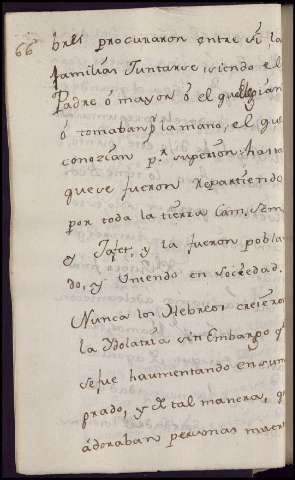 66 bres procuraron entre si, la
familian Juntarse siendo el
Padre ó mayor ó el que elegian
ó tomaban pr. la mano, el que
conozian pr. superior: hasta
quese fueron Repartiendo
por toda la tierra Cam, Sem
y Jafet, y la fueron pobla
do, y Uniendo en Sociedad.
Nunca los Hebreos creieron
la Ydolatria sin Embargo qe
sefue haumentando en sum
prado, y de tal manera, q
ádoraban personas muert